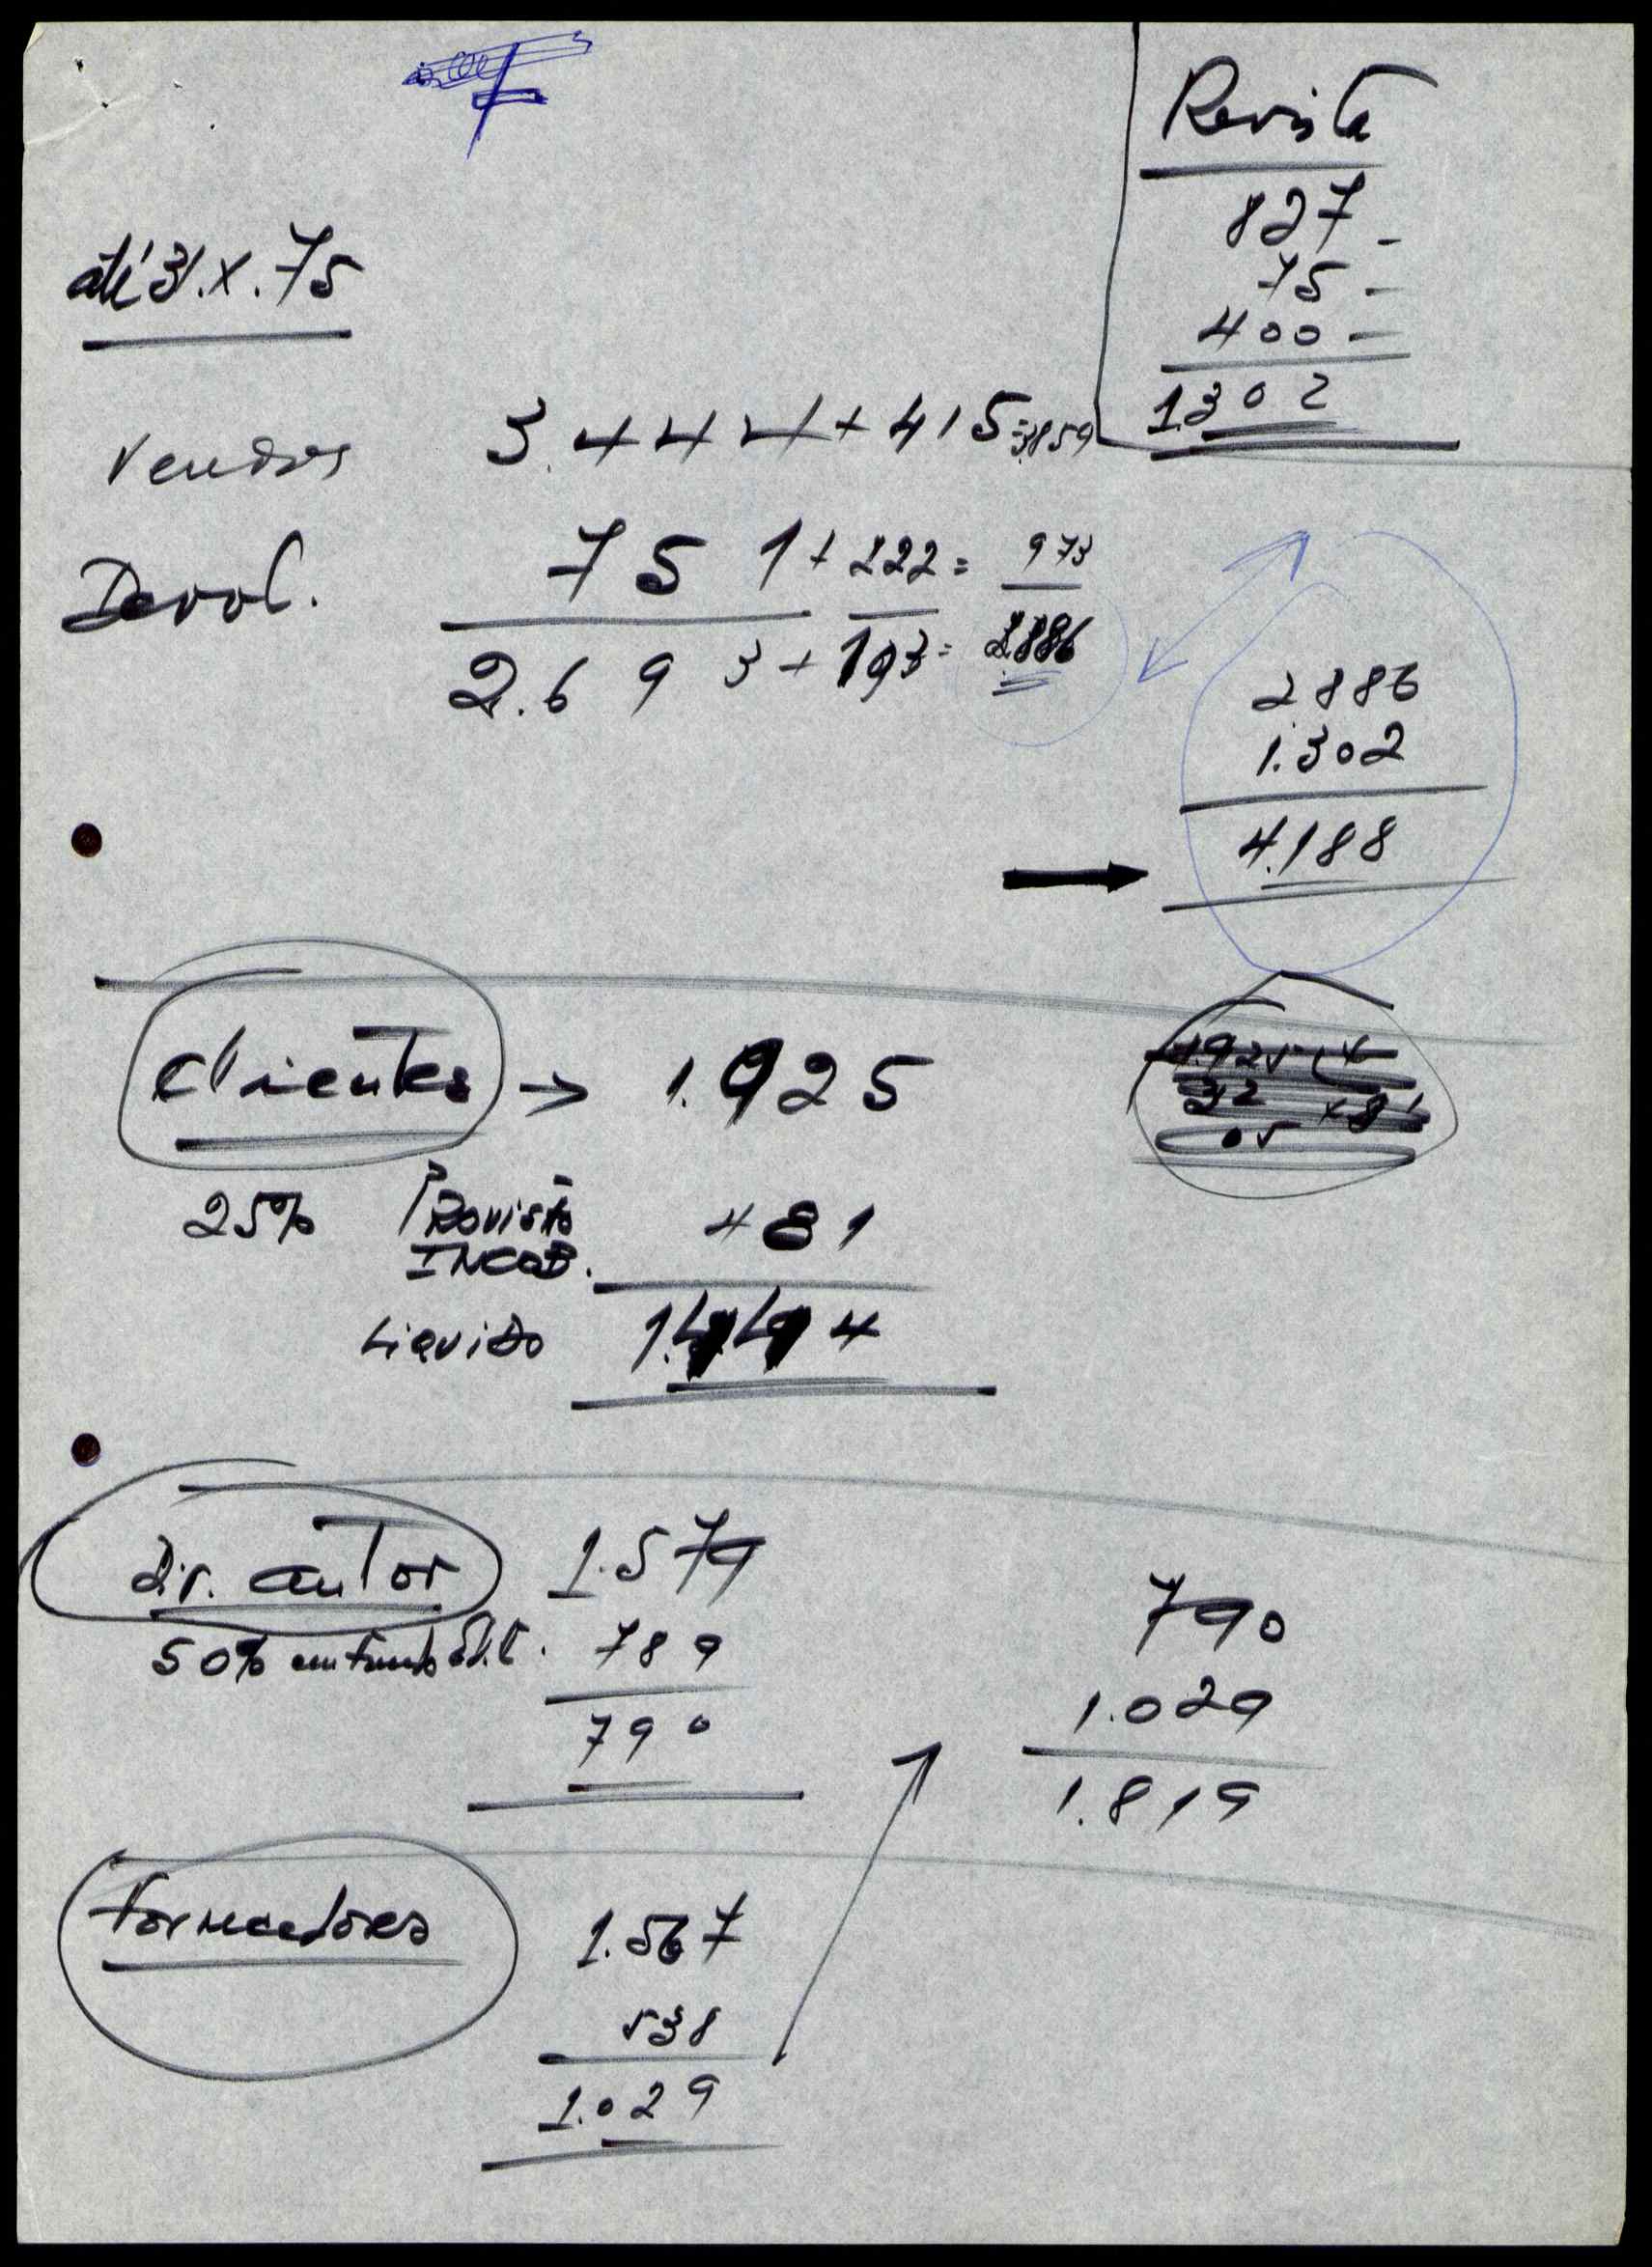 Revista
827 -
75 -
400 -
1302
até 31.X.75
Vendas 3.444 + 415 = 3859
Devol. 751 + 222 = 973
2.693 + 193 = 2886
2886
1.302
4.188
Clientes → 1.925
25% Provisão 481
INCOB.
Liquido 1.444
Dir. autor 1.579
50% 789
790
790
1.029
1.819
Fornecedores 1.567
538
1.029